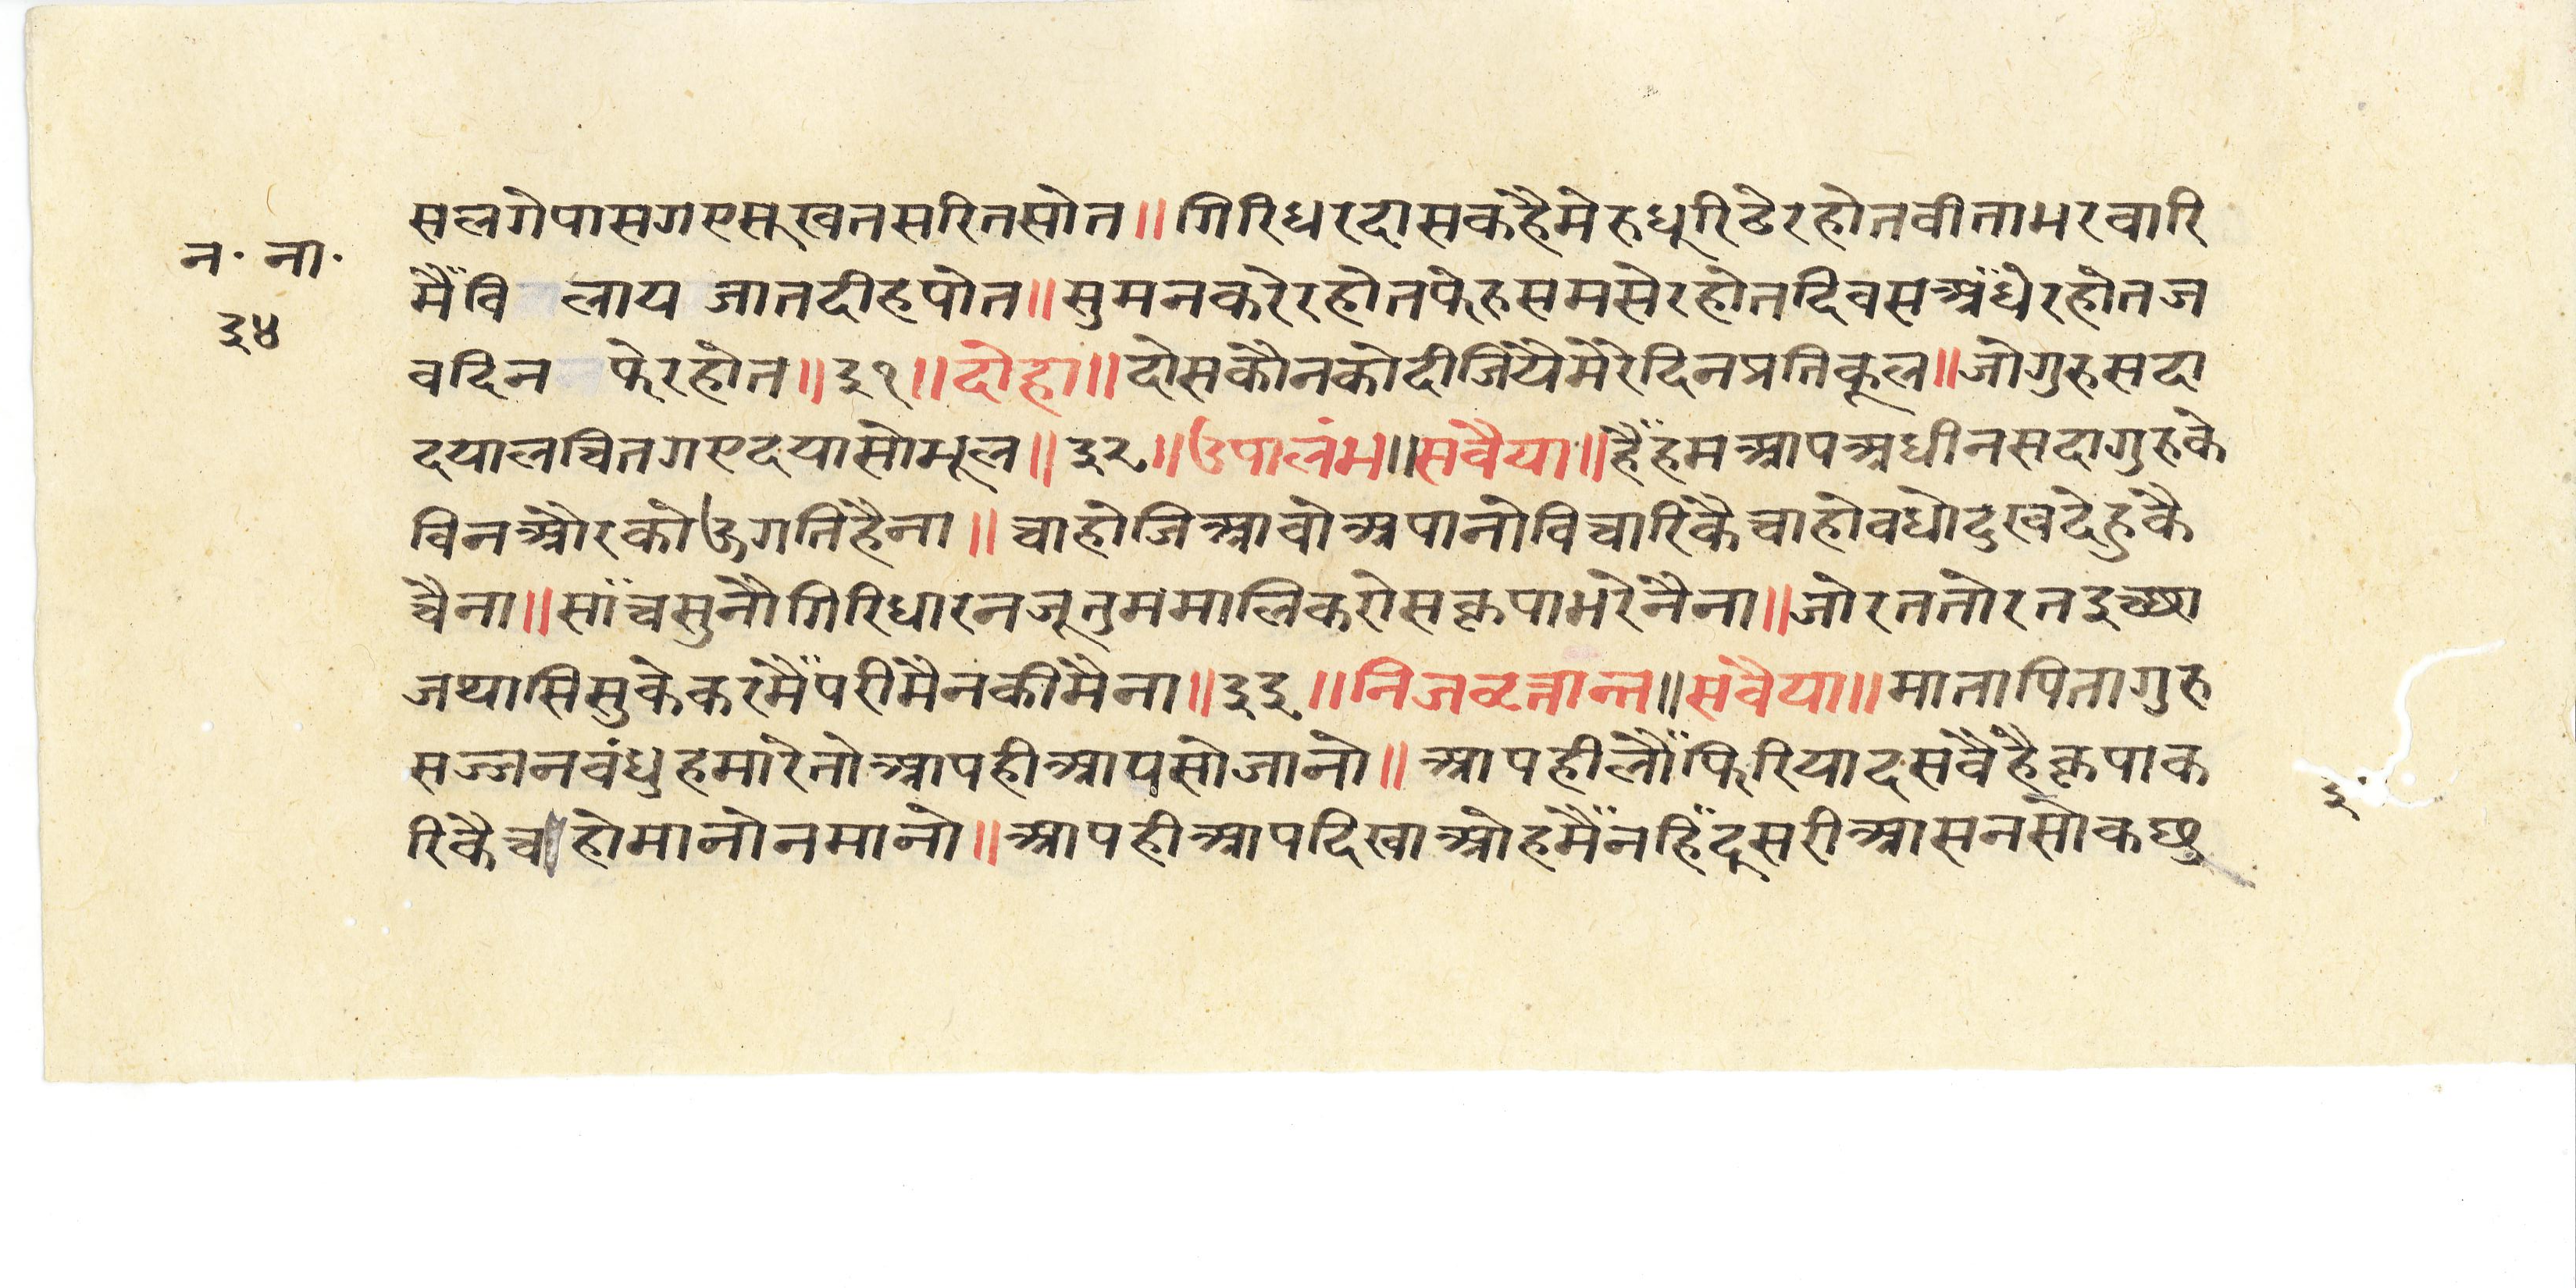 सलगेपासगएसुखनसरितसोत॥गिरिधरदासकहैमेरुधुरिढेरहोतवीतामरवारि
न॰ ना॰
मैँवि लाय जातदीहपोत॥सुमनकरेरहोतफेरुसमसेरहोतदिवसअँधेरहोतज
३४
वदिन फेरहोत॥३१॥दोहा॥दोसकौनकोदीजियेमेरेदिनप्रतिकूल॥जोगुरुसदा
दयालचितगएदयासोभूल॥३२॥उपालंभ॥सवैया॥हैँहमआपअधीनसदागुरुके
विनऔरकोऊगतिहैना॥चाहोजिआवोअपानोविचारिकैचाहोवधोदुखदेहुकै
चैना॥साँचसुनौगिरिधारनजूतुममालिकरोसकृपाभरेनैना॥जोरततोरतइच्छा
जथासिसुकेकरमैँपरीमैनकीमैना॥३३॥निजवृत्तान्त॥सवैया॥मातापितागुरु
सज्जनवंधुहमारेतोआपहीआपसोजानो॥आपहीलौँफिरियादसवैहैकृपाक
३॰
रिकैचाहोमानोनमानो॥आपहीआपदिखाओहमैँनहिँदूसरीआसनसोकछु